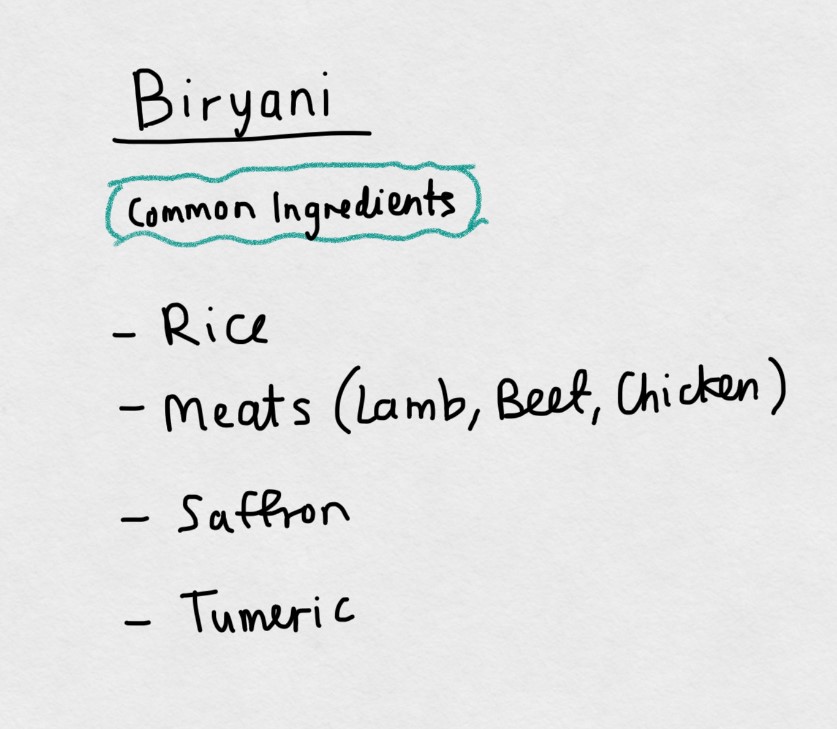 Biryani
Common Ingredients
- Rice
- Meats (Lamb, Beef, Chicken)
- Saffron
- Tumeric